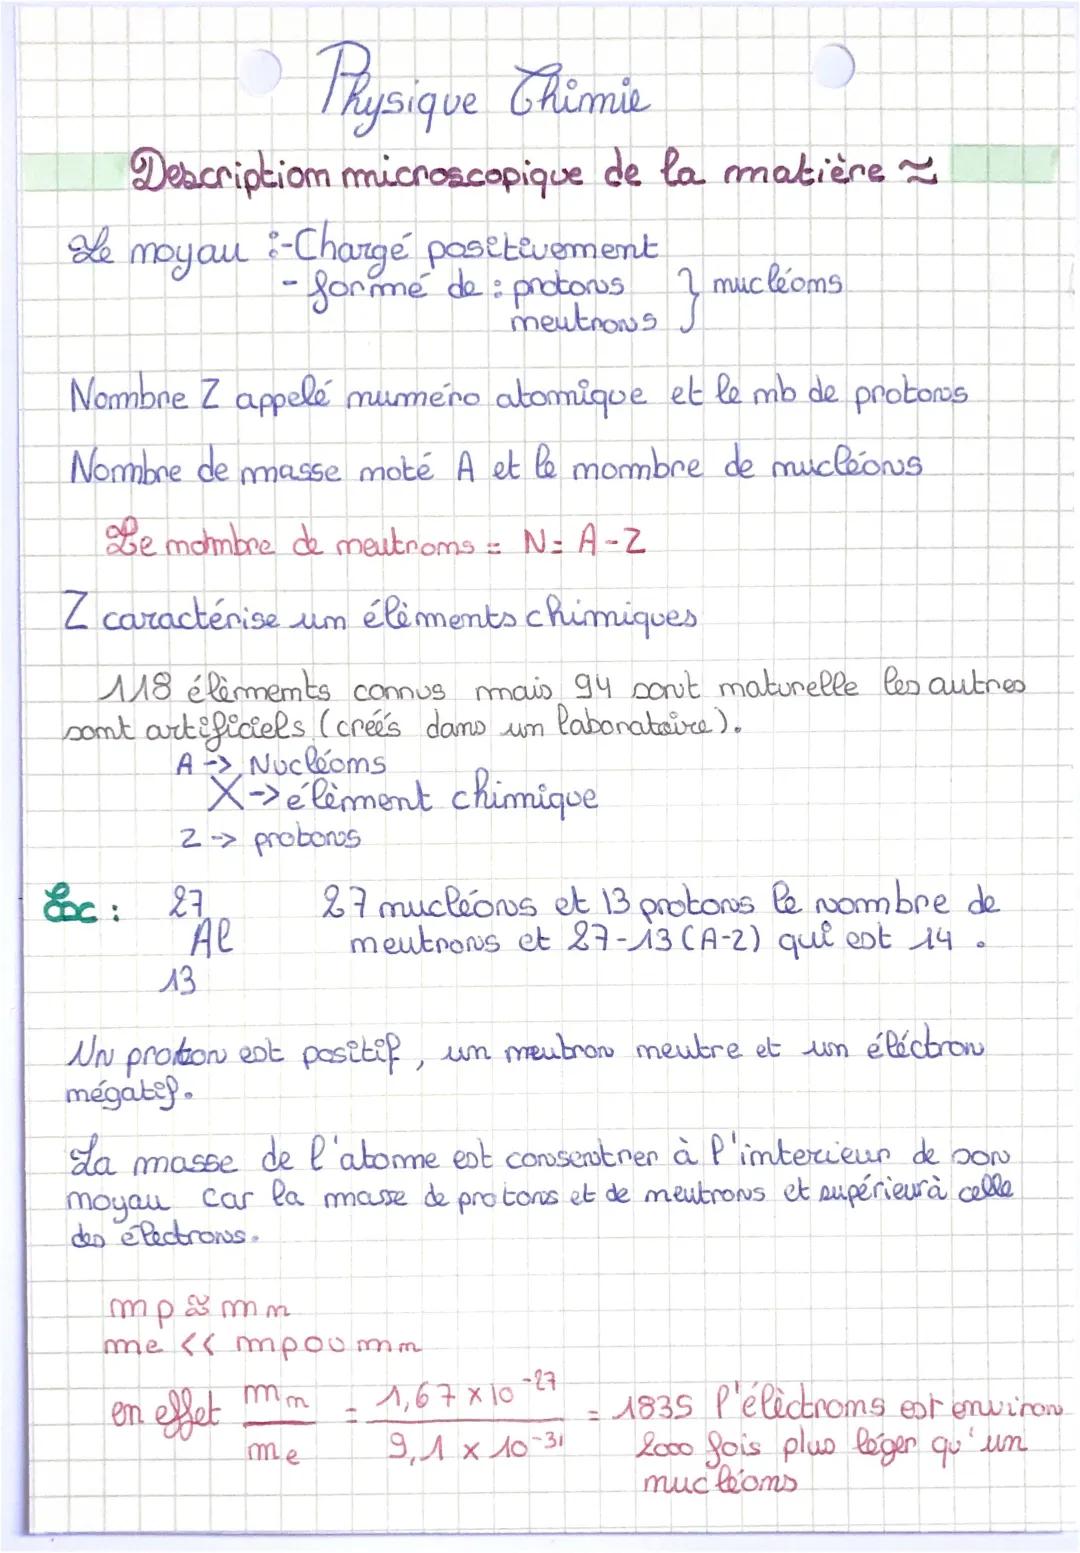 Physique Chimie
Description microscopique de la matière ≈
Le noyau :- Chargé positivement
- formé de : protons } nucléons
neutrons
Nombre Z appelé numéro atomique et le nb de protons
Nombre de masse noté A et le nombre de nucléons
Le nombre de neutrons = N = A - Z
Z caractérise un éléments chimiques
118 éléments connus mais 94 sont naturelle les autres
sont artificiels (créés dans un laboratoire).
A -> Nucléons
X -> élément chimique
Z -> protons
Ex : 27 27 nucléons et 13 protons le nombre de
Al neutrons et 27-13 (A-Z) qui est 14 .
13
Un proton est positif , un neutron neutre et un éléctron
négatif.
La masse de l'atome est consentrer à l'interieur de son
noyau car la masse de protons et de neutrons et supérieur à celle
des électrons.
mp ≈ mn
me << mp ou mn
en effet mn / me = 1,67 × 10⁻²⁷ / 9,1 × 10⁻³¹ = 1835 l'élèctrons est environ
2000 fois plus léger qu'un
nucléons